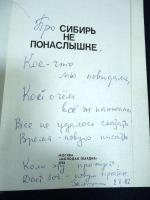 Про СИБИРЬ
НЕ
ПОНАСЛЫШКЕ.
Кое-что
мы повидали,
Кой о чём
всё ж написали
Все не удалось сказать
Время - новую писать
МОСКВА
«МОЛОДАЯ ГВАРДИЯ»
Коли эту прочтут
Дай бог - новую